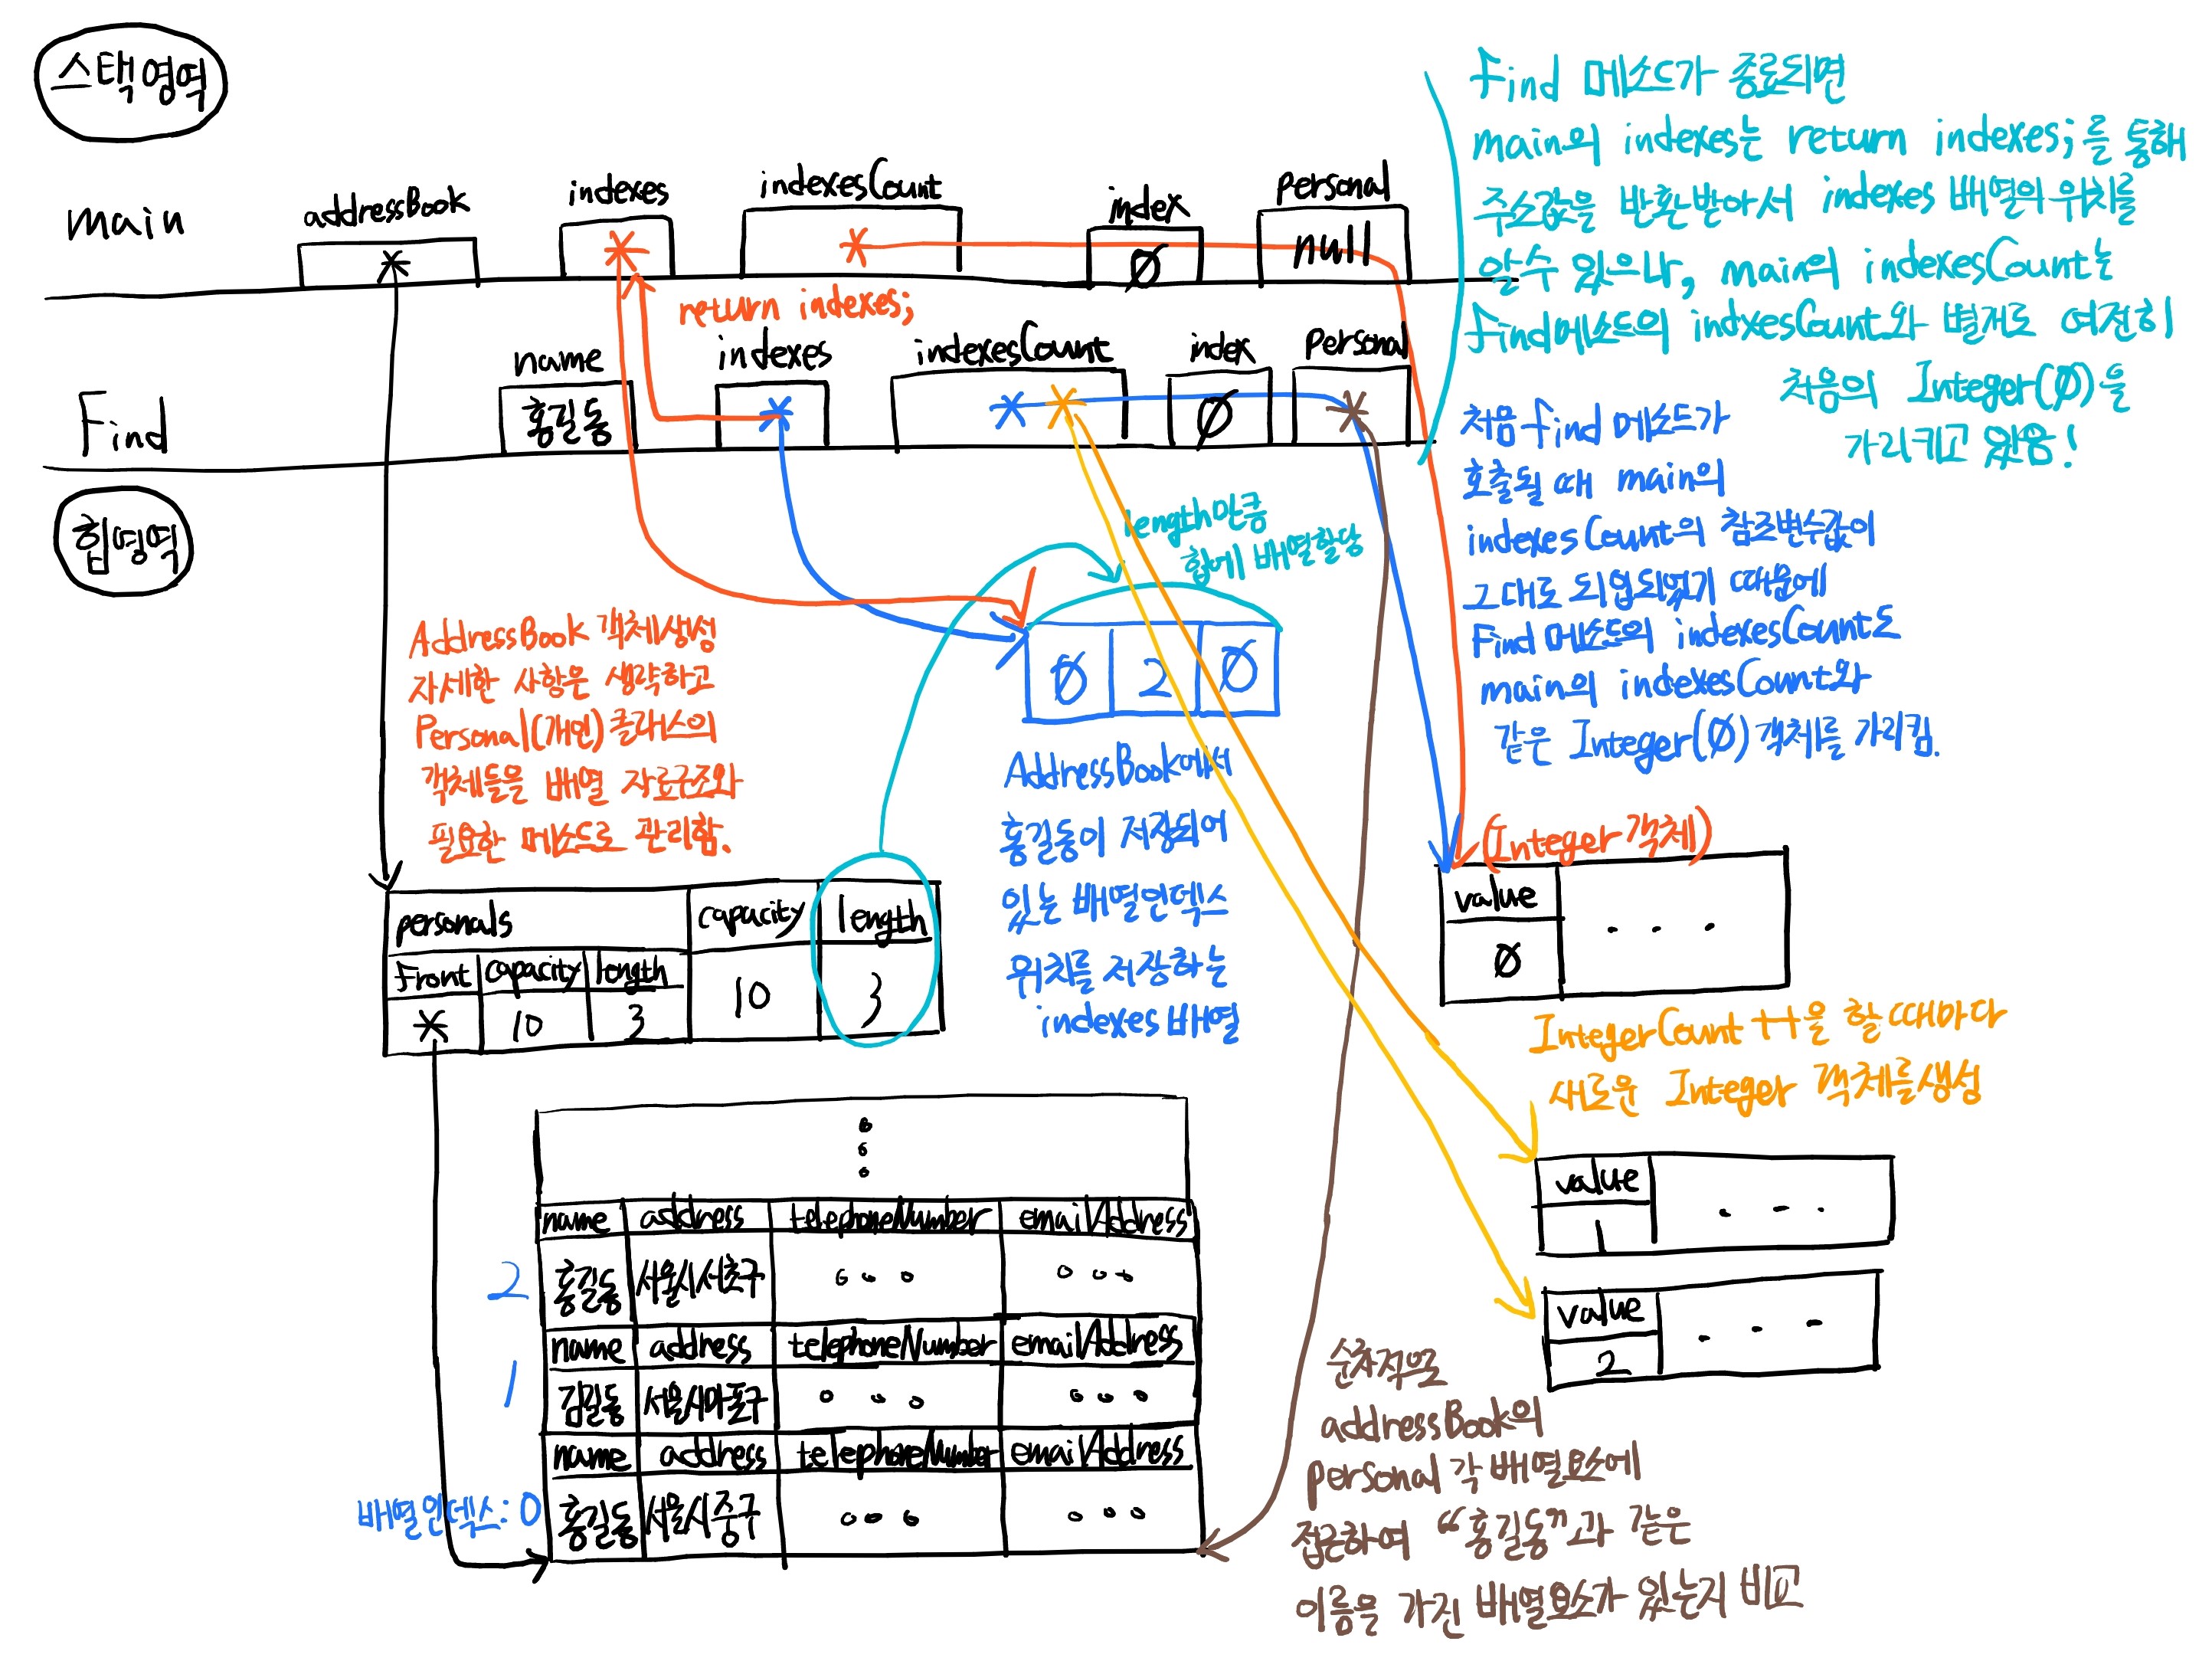 스택영역
main
addressBook
indexes
indexesCount
index
personal
*
*
*
Ø
null
return indexes;
Find
name
indexes
indexesCount
index
personal
홍길동
*
* *
Ø
*
힙영역
Find 메소드가 종료되면
main의 indexes는 return indexes;를 통해
주소값을 반환받아서 indexes 배열의 위치를
알수 있으나, main의 indexesCount는
find메소드의 indxesCount와 별개로 여전히
처음의 Integer(Ø)을
가리키고 있음!
처음 find 메소드가
호출될 때 main의
indexesCount의 참조변수값이
그대로 대입되었기 때문에
Find 메소드의 indexesCount도
main의 indexesCount와
같은 Integer(Ø) 객체를 가리킴.
length만큼
힙에 배열할당
Ø 2 Ø
AddressBook 객체생성
자세한 사항은 생략하고
Personal(개인) 클래스의
객체들을 배열 자료구조와
필요한 메소드로 관리함.
AddressBook에서
홍길동이 저장되어
있는 배열인덱스
위치를 저장하는
indexes 배열
(Integer 객체)
value
Ø
. . .
personals capacity length
front capacity length
* 10 3
10 3
IntegerCount ++을 할 때마다
새로운 Integer 객체를 생성
value
1
. . .
value
2
. . .
name address telephoneNumber emailAddress
2
홍길동 서울시서초구
name address telephoneNumber emailAddress
1
김길동 서울시마포구
name address telephoneNumber emailAddress
배열인덱스: 0
홍길동 서울시중구
순차적으로
addressBook의
personal 각 배열요소에
접근하여 “홍길동”과 같은
이름을 가진 배열요소가 있는지 비교